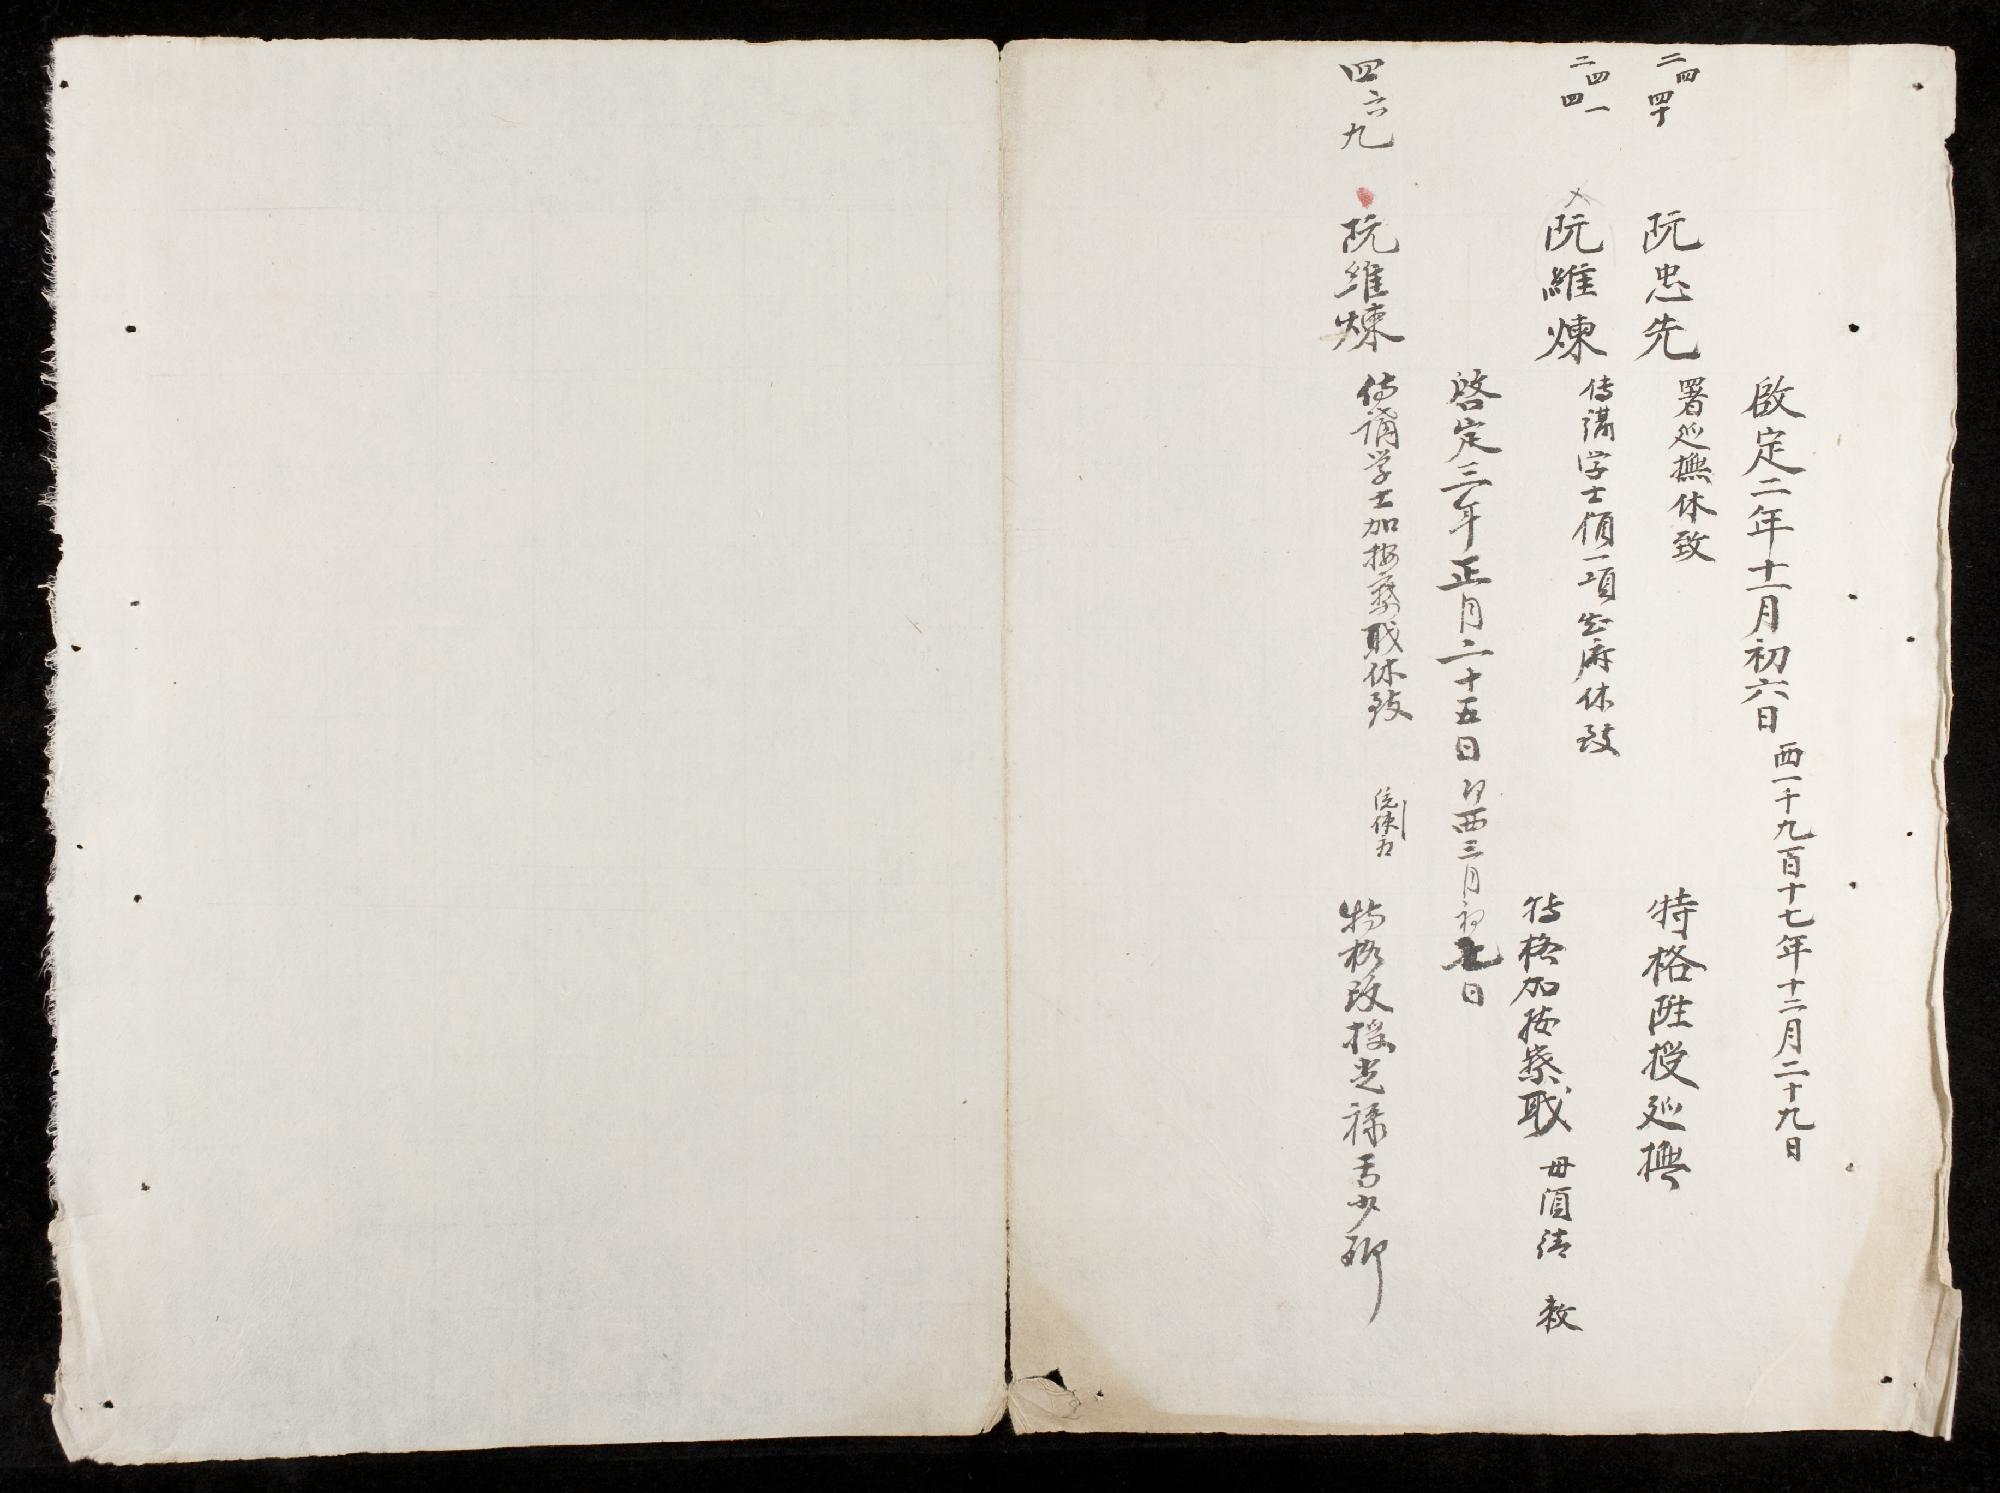 啟定二年十一月初六日 西一千九百十七年十二月二十九日
二四四十 阮忠先 署巡撫休致 特格陞授巡撫
二四一四 阮維煉 侍講学士領一項知府休致 特格加按察職 毋須請 敕
啓定三年正月二十五日 即西三月初七日
四六九 阮維煉 侍講学士加按察職休致 特格改授光禄寺少卿